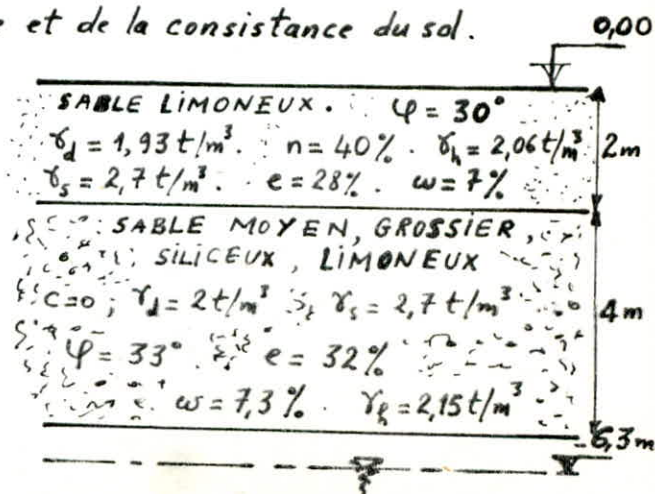 et de la consistance du sol.
0,00
SABLE LIMONEUX. φ = 30°
γd = 1,93 t/m³. n = 40%. γh = 2,06 t/m³
γs = 2,7 t/m³. e = 28%. ω = 7%
2m
SABLE MOYEN, GROSSIER,
SILICEUX, LIMONEUX
C=0; γd = 2 t/m³; γs = 2,7 t/m³
4m
φ = 33° e = 32%
ω = 7,3%. γh = 2,15 t/m³
-6,3m